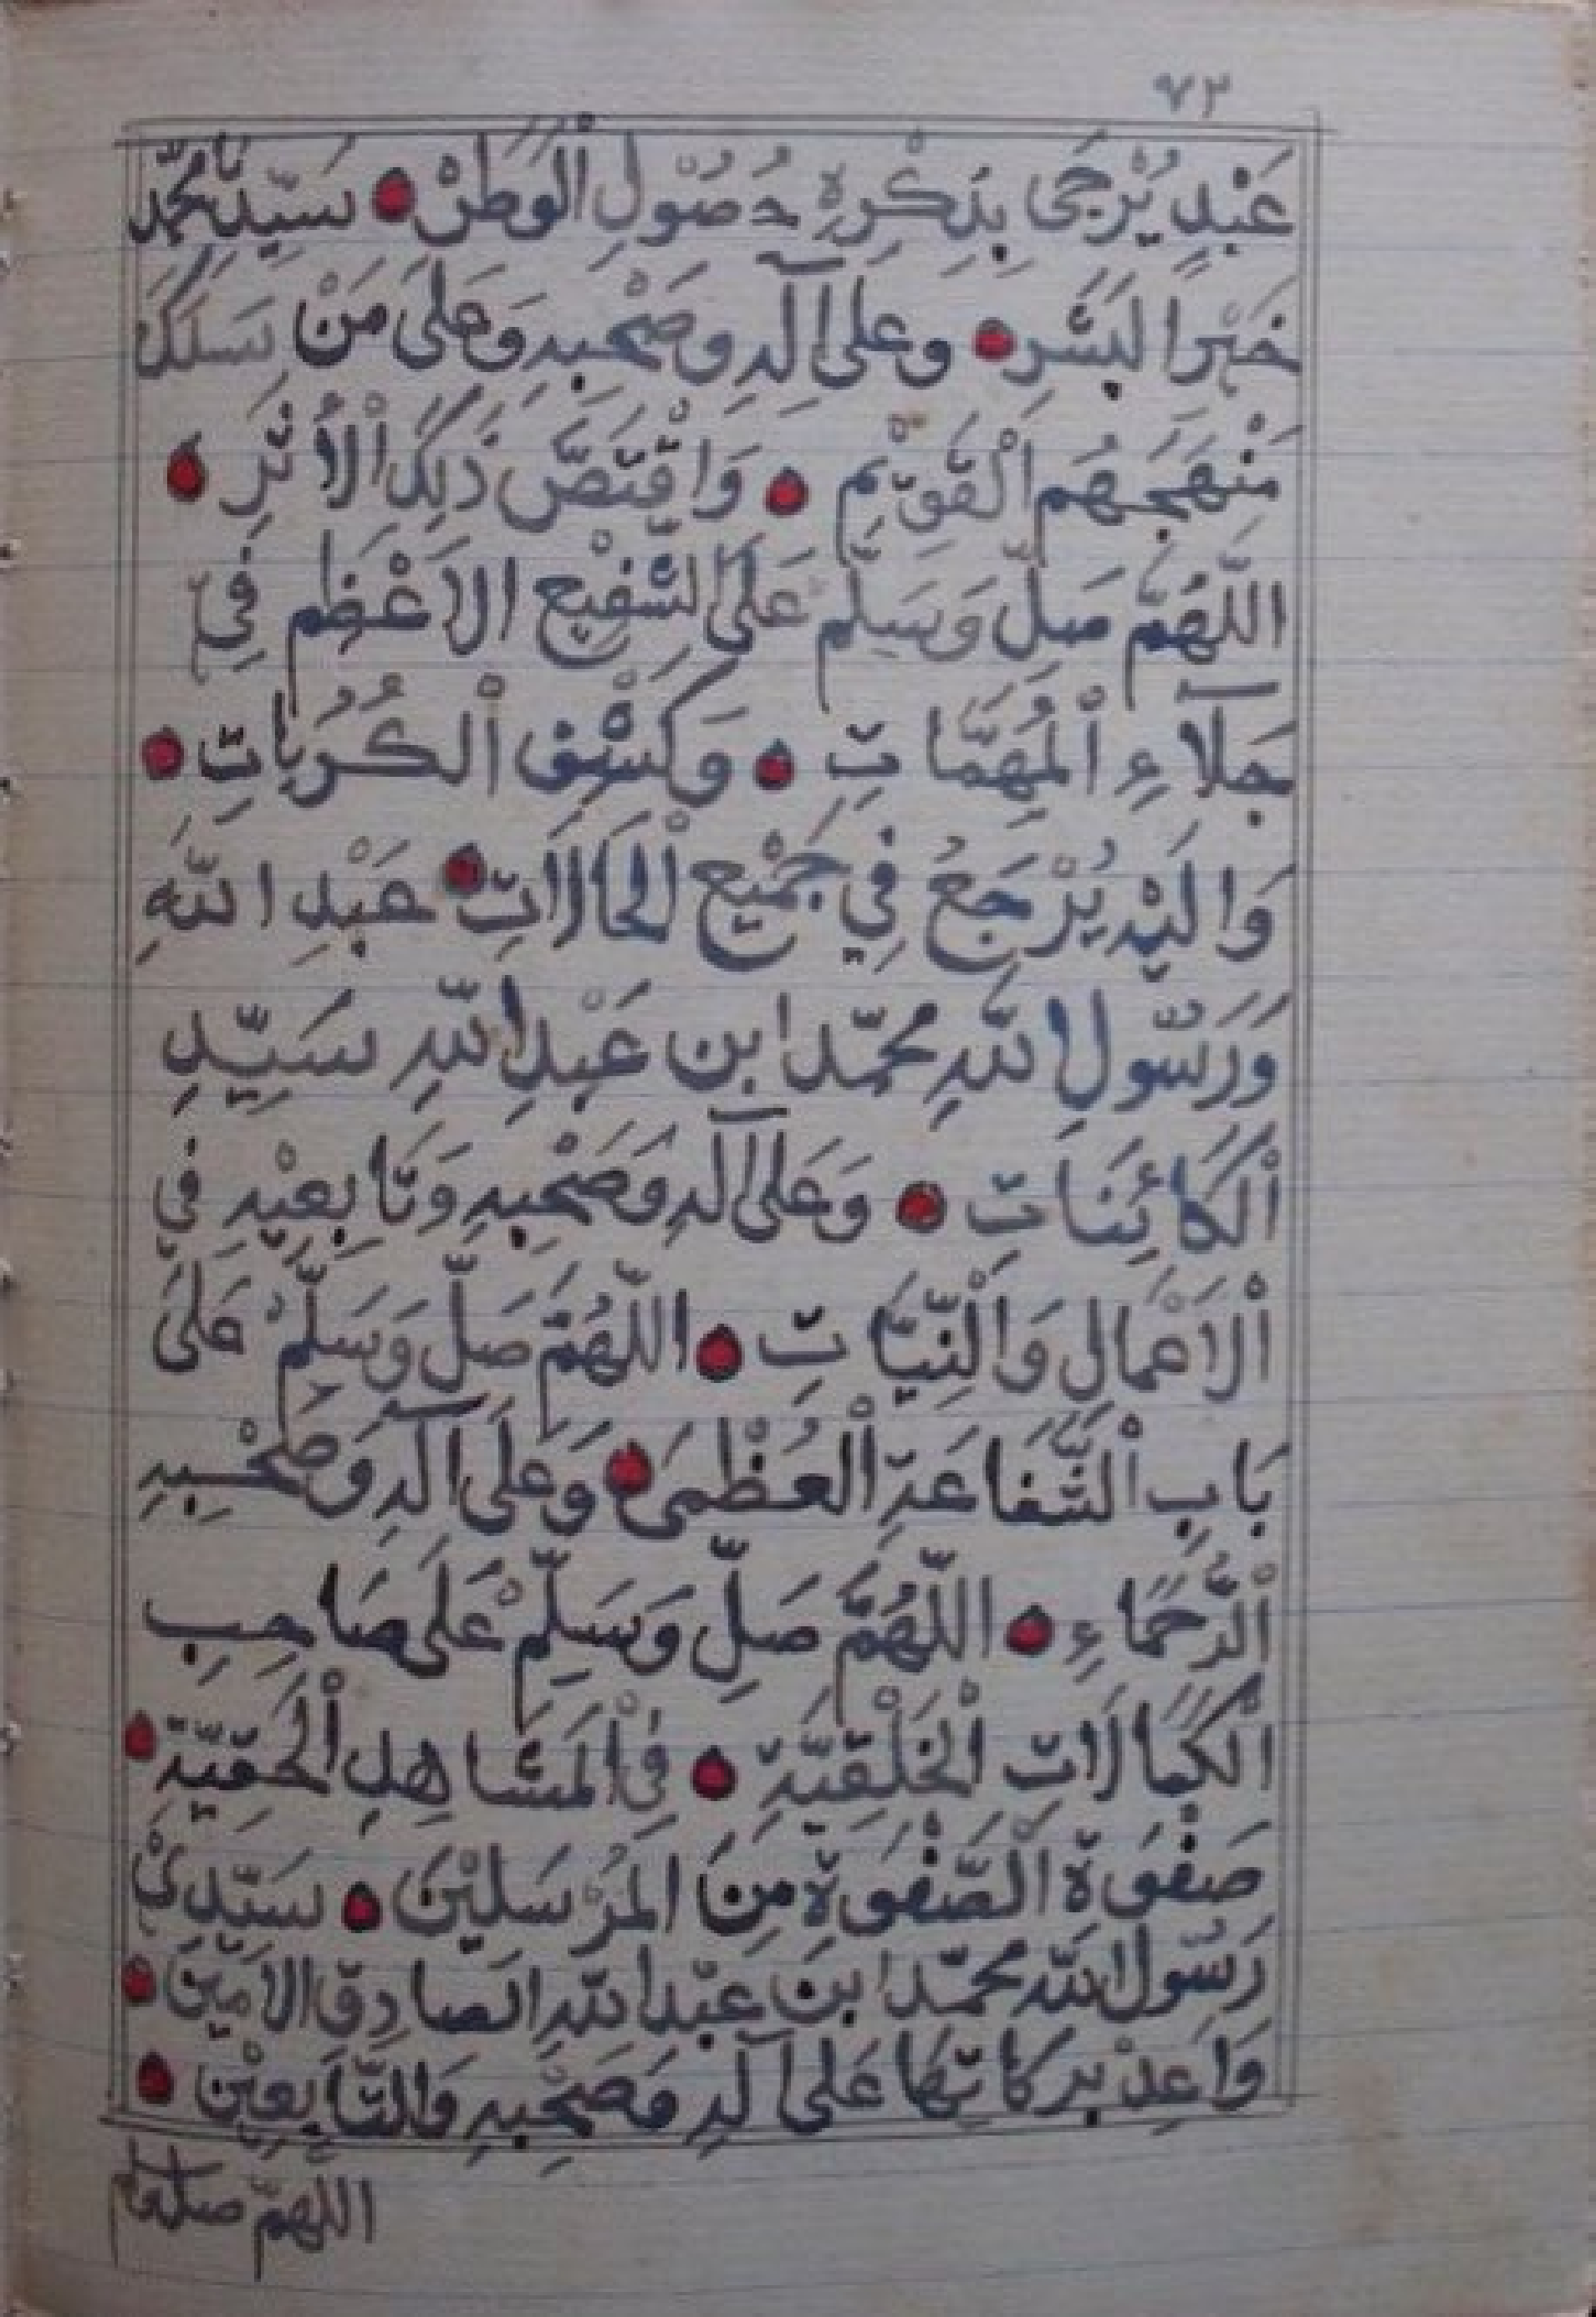 ٧٢
عَبْدٍ يُرْجَى بِذِكْرِهِ حُصُوْلِ الْوَطَرْ • سَيِّدِنَا مُحَمَّدٍ
خَيْرِ الْبَشَرِ • وعَلَى آلِهِ وصَحْبِهِ وَعَلَى مَنْ سَلَكَ
مَنْهَجَهُمِ الْقَوِّيْمِ • وَاقْتَصَّ ذَلِكَ الْأَثَرِ •
اللّهُمَّ صَلِّ وَسَلِّمْ عَلَى الشَّفِيْعِ الاَعْظَمِ فِيْ
جَلَآءِ الْمُهِمَّاتِ • وَكَشْفِ الْكُرُبَاتِ •
وَالَيْهِ يُرْجَعُ فِي جَمْيِعِ الْحَالَاتِ • عَبْدِ اللَّهِ
وَرَسُوْلِ اللّهِ مُحَمّد ابن عَبْدِ اللّهِ سَيِّدِ
الْكَائِنَاتِ • وَعَلَى آلِهِ وَصَحْبِهِ وَتَابِعِيْهِ فِي
الْاَعْمَالِ وَالْنِيَّاتِ • اللّهُمَّ صَلِّ وَسَلِّمْ عَلَى
بَابِ الْشَّفَاعَةِ الْعُظْمَى • وَعَلَى آلِهِ وَصَحْبِهِ
الْرُّحَمَاءِ • اللّهُمَّ صَلِّ وَسَلِّمْ عَلَى صَاحِبِ
الْكَمَالَاتِ الْخَلْقِيَّةِ • فِي الْمَشَاهِدِ الْحَقِّيَّةِ •
صَفْوَةِ الْصَّفْوَةِ مِنَ الْمُرْسَلِيْنَ • سَيِّدِيْ
رَسُوْلِ اللّهِ مُحَمّد ابن عَبْدِ اللّهِ الصَادِقِ الاَمِيْنِ •
وَاَعِدْ بَرَكَاتِهَا عَلَى آلِهِ وَصَحْبِهِ وَالتَّابِعِيْن •
اللّهمّ صل وسلم